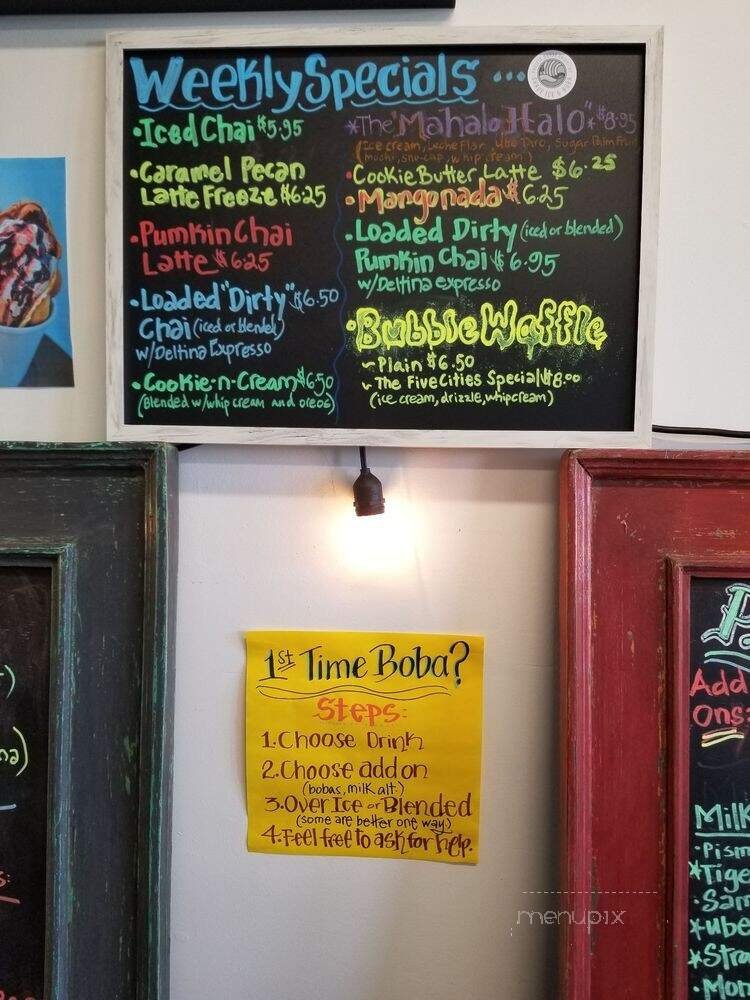 Weekly Specials ...
• Iced Chai $5.95
• Caramel Pecan
Latte Freeze $6.25
• Pumkin Chai
Latte $6.25
• Loaded "Dirty" $6.50
Chai (iced or blended)
w/Deltina Expresso
• Cookie-n-Cream $6.50
(Blended w/whip cream and oreos)
*The "Mahalo Halo" $8.95
(Ice cream, Leche Flan, Ube Taro, Sugar Palm Fruit
mochi, sno-cap, whip cream)
• Cookie Butter Latte $6.25
• Mangonada $6.25
• Loaded Dirty (iced or blended)
Pumkin Chai $6.95
w/Deltina expresso
• Bubble Waffle
~ Plain $6.50
~ The Five Cities Special $8.00
(ice cream, drizzle, whipcream)
1st Time Boba?
Steps:
1. Choose Drink
2. Choose add on
(bobas, milk alt.)
3. Over Ice or Blended
(some are better one way.)
4. Feel free to ask for help.
Add
Ons
Milk
• Pism
*Tige
• Sam
*ube
*Stra
• Mon
na)
menupix